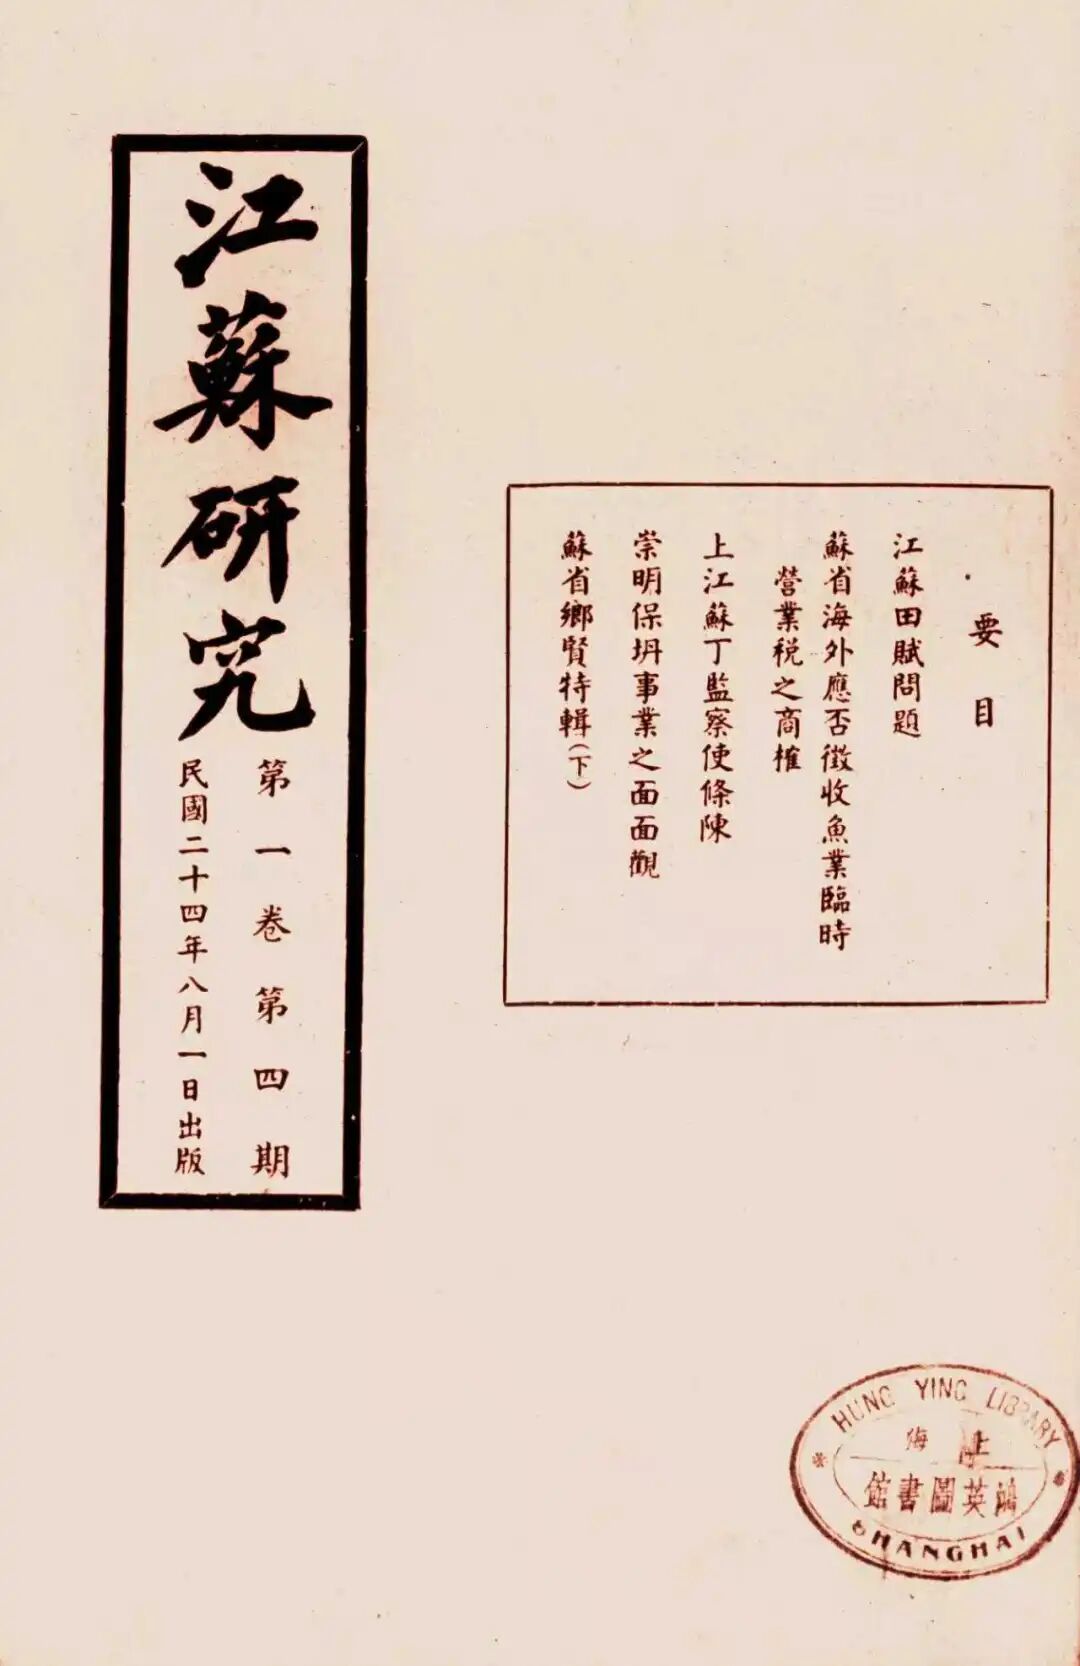 江蘇研究
第一卷第四期
民國二十四年八月一日出版
要目
江蘇田賦問題
蘇省海外應否徵收魚業臨時
營業稅之商榷
上江蘇丁監察使條陳
崇明保坍事業之面面觀
蘇省鄉賢特輯(下)
HUNG YING LIBRARY
上海
鴻英圖書館
SHANGHAI